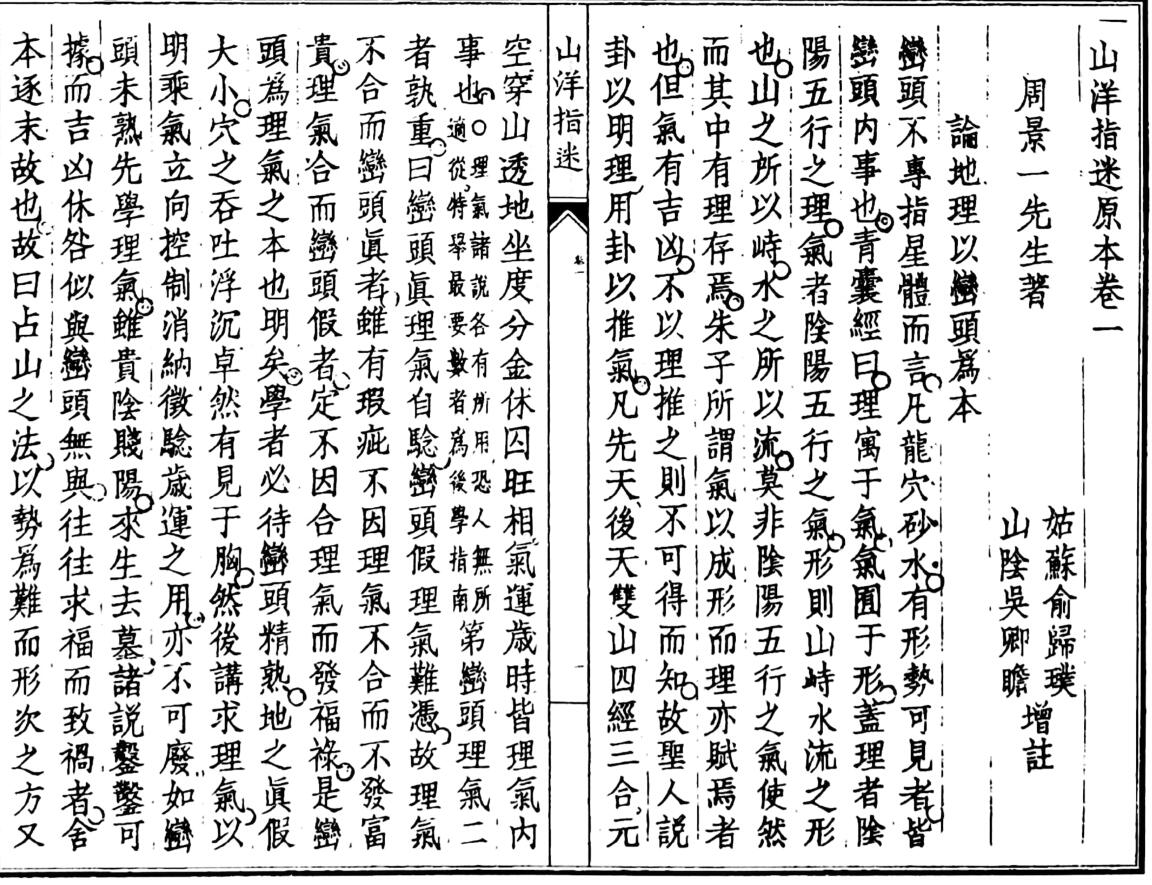 山洋指迷原本卷一
周景一先生著
姑蘇俞歸璞
山陰吳卿瞻
增註
論地理以巒頭爲本
巒頭不專指星體而言凡龍穴砂水有形勢可見者皆
巒頭内事也青囊經曰理寓于氣氣囿于形蓋理者陰
陽五行之理氣者陰陽五行之氣形則山峙水流之形
也山之所以峙水之所以流莫非陰陽五行之氣使然
而其中有理存焉朱子所謂氣以成形而理亦賦焉者
也但氣有吉凶不以理推之則不可得而知故聖人説
卦以明理用卦以推氣凡先天後天雙山四經三合元
山洋指迷
卷一
一
空穿山透地坐度分金休囚旺相氣運歲時皆理氣内
事也○理氣諸說各有所用恐人無所適從特舉最要數者爲後學指南第巒頭理氣二
者孰重曰巒頭眞理氣自驗巒頭假理氣難憑故理氣
不合而巒頭眞者雖有瑕疵不因理氣不合而不發富
貴理氣合而巒頭假者定不因合理氣而發福祿是巒
頭爲理氣之本也明矣學者必待巒頭精熟地之眞假
大小穴之吞吐浮沉卓然有見于胸然後講求理氣以
明乘氣立向控制消納徵驗歲運之用亦不可廢如巒
頭未熟先學理氣雖貴陰賤陽來生去墓諸説鑿鑿可
據而吉凶休咎似與巒頭無與往往求福而致禍者舍
本逐末故也故曰占山之法以勢爲難而形次之方又